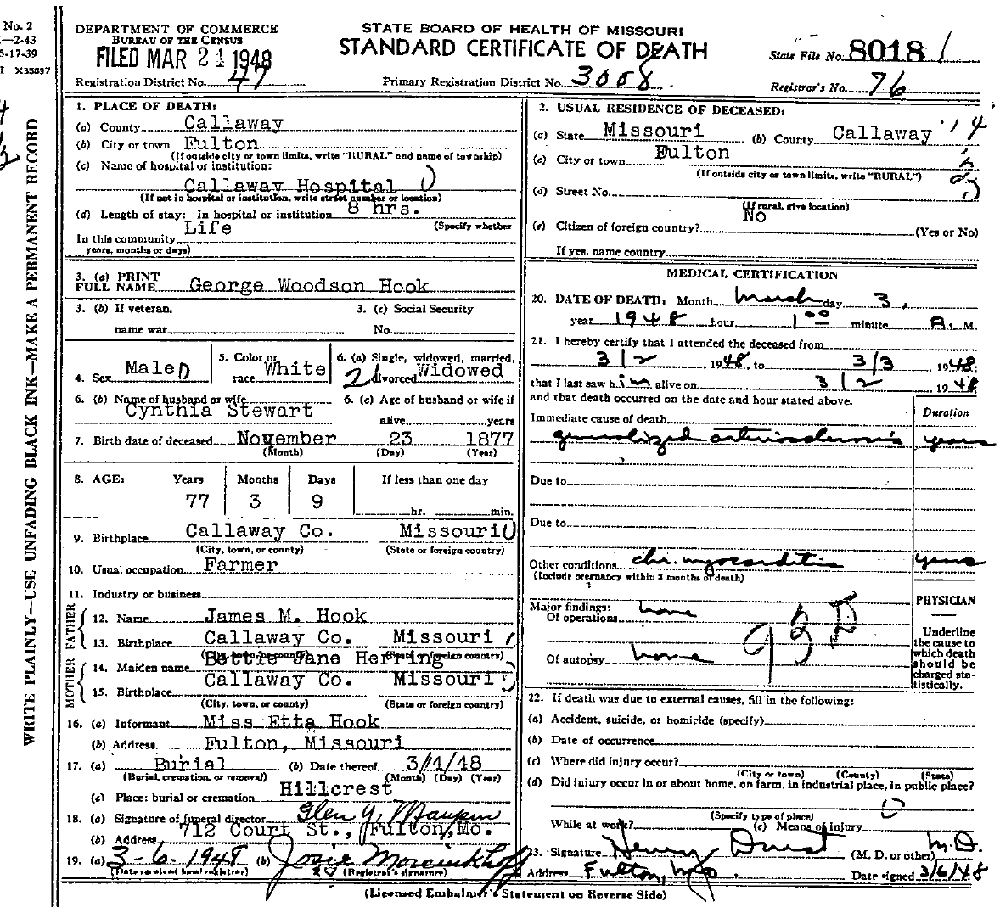 No. 2
-2-43
5-17-39
I X35697
WRITE PLAINLY—USE UNFADING BLACK INK—MAKE A PERMANENT RECORD
DEPARTMENT OF COMMERCE
BUREAU OF THE CENSUS
FILED MAR 21 1948
Registration District No. 47
STATE BOARD OF HEALTH OF MISSOURI
STANDARD CERTIFICATE OF DEATH
Primary Registration District No. 3008
State File No. 8018
Registrar's No. 76
1. PLACE OF DEATH:
(a) County Callaway
(b) City or town Fulton
(If outside city or town limits, write "RURAL" and name of township)
(c) Name of hospital or institution:
Callaway Hospital
(If not in hospital or institution, write street number or location)
(d) Length of stay: In hospital or institution 8 hrs.
(Specify whether
In this community Life
years, months or days)
2. USUAL RESIDENCE OF DECEASED:
(a) State Missouri (b) County Callaway
(c) City or town Fulton
(If outside city or town limits, write "RURAL")
(d) Street No.
(If rural, give location)
(e) Citizen of foreign country? No (Yes or No)
If yes, name country
3. (a) PRINT FULL NAME George Woodson Hook
3. (b) If veteran, name war
3. (c) Social Security No.
4. Sex Male
5. Color or race White
6. (a) Single, widowed, married, divorced Widowed
6. (b) Name of husband or wife Cynthia Stewart
6. (c) Age of husband or wife if alive years
7. Birth date of deceased November 23 1877
(Month) (Day) (Year)
8. AGE: Years Months Days If less than one day
77 3 9 hr. min.
9. Birthplace Callaway Co. Missouri
(City, town, or county) (State or foreign country)
10. Usual occupation Farmer
11. Industry or business
FATHER
12. Name James M. Hook
13. Birthplace Callaway Co. Missouri
(City, town, or county) (State or foreign country)
MOTHER
14. Maiden name Bettie Jane Herring
15. Birthplace Callaway Co. Missouri
(City, town, or county) (State or foreign country)
16. (a) Informant Miss Etta Hook
(b) Address Fulton, Missouri
17. (a) Burial (b) Date thereof 3/4/48
(Burial, cremation, or removal) (Month) (Day) (Year)
(c) Place: burial or cremation Hillcrest
18. (a) Signature of funeral director Glen Y. Maupin
(b) Address 712 Court St., Fulton, Mo.
19. (a) 3-6-1948 (b) Josie
(Date received local registrar) (Registrar's signature)
MEDICAL CERTIFICATION
20. DATE OF DEATH: Month March day 3,
year 1948 hour 1 00 minute A. M.
21. I hereby certify that I attended the deceased from
3/2 1948, to 3/3 1948
that I last saw him alive on 3/2 1948
and that death occurred on the date and hour stated above.
Duration
Immediate cause of death
generalized arteriosclerosis years
Due to
Due to
Other conditions chr. myocarditis years
(Include pregnancy within 3 months of death)
Major findings:
Of operations none
Of autopsy none
93D
PHYSICIAN
Underline the cause to which death should be charged statistically.
22. If death was due to external causes, fill in the following:
(a) Accident, suicide, or homicide (specify)
(b) Date of occurrence
(c) Where did injury occur?
(City or town) (County) (State)
(d) Did injury occur in or about home, on farm, in industrial place, in public place?
(Specify type of place)
While at work? (e) Means of injury
23. Signature Henry Durst M.D.
(M. D. or other)
Address Fulton, Mo Date signed 3/6/48
(Licensed Embalmer's Statement on Reverse Side)